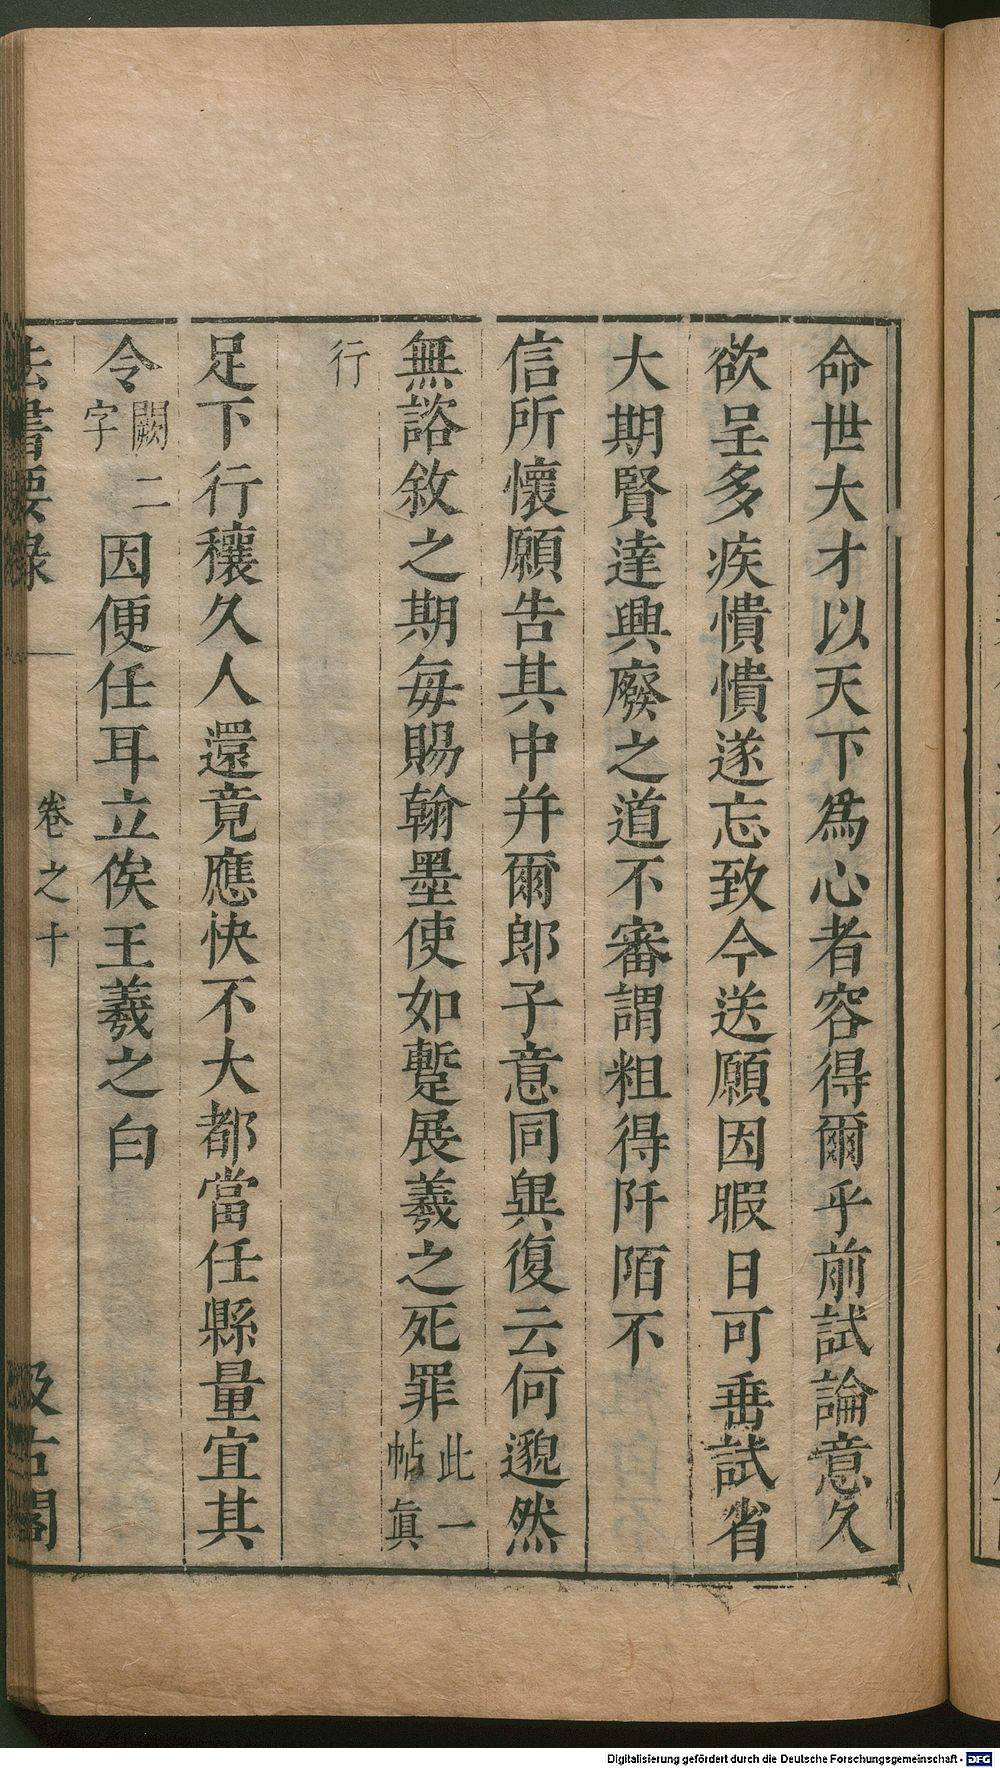 命世大才以天下爲心者容得爾乎前試論意久
欲呈多疾憒憒遂忘致今送願因暇日可垂試省
大期賢達興廢之道不審謂粗得阡陌不
信所懷願告其中幷爾郎子意同異復云何邈然
無諮敘之期每賜翰墨使如蹔展羲之死罪此一帖眞
行
足下行穰久人還竟應快不大都當任縣量宜其
令闕二字因便任耳立俟王羲之白
法書要錄 卷之十 汲古閣
Digitalisierung gefördert durch die Deutsche Forschungsgemeinschaft - DFG